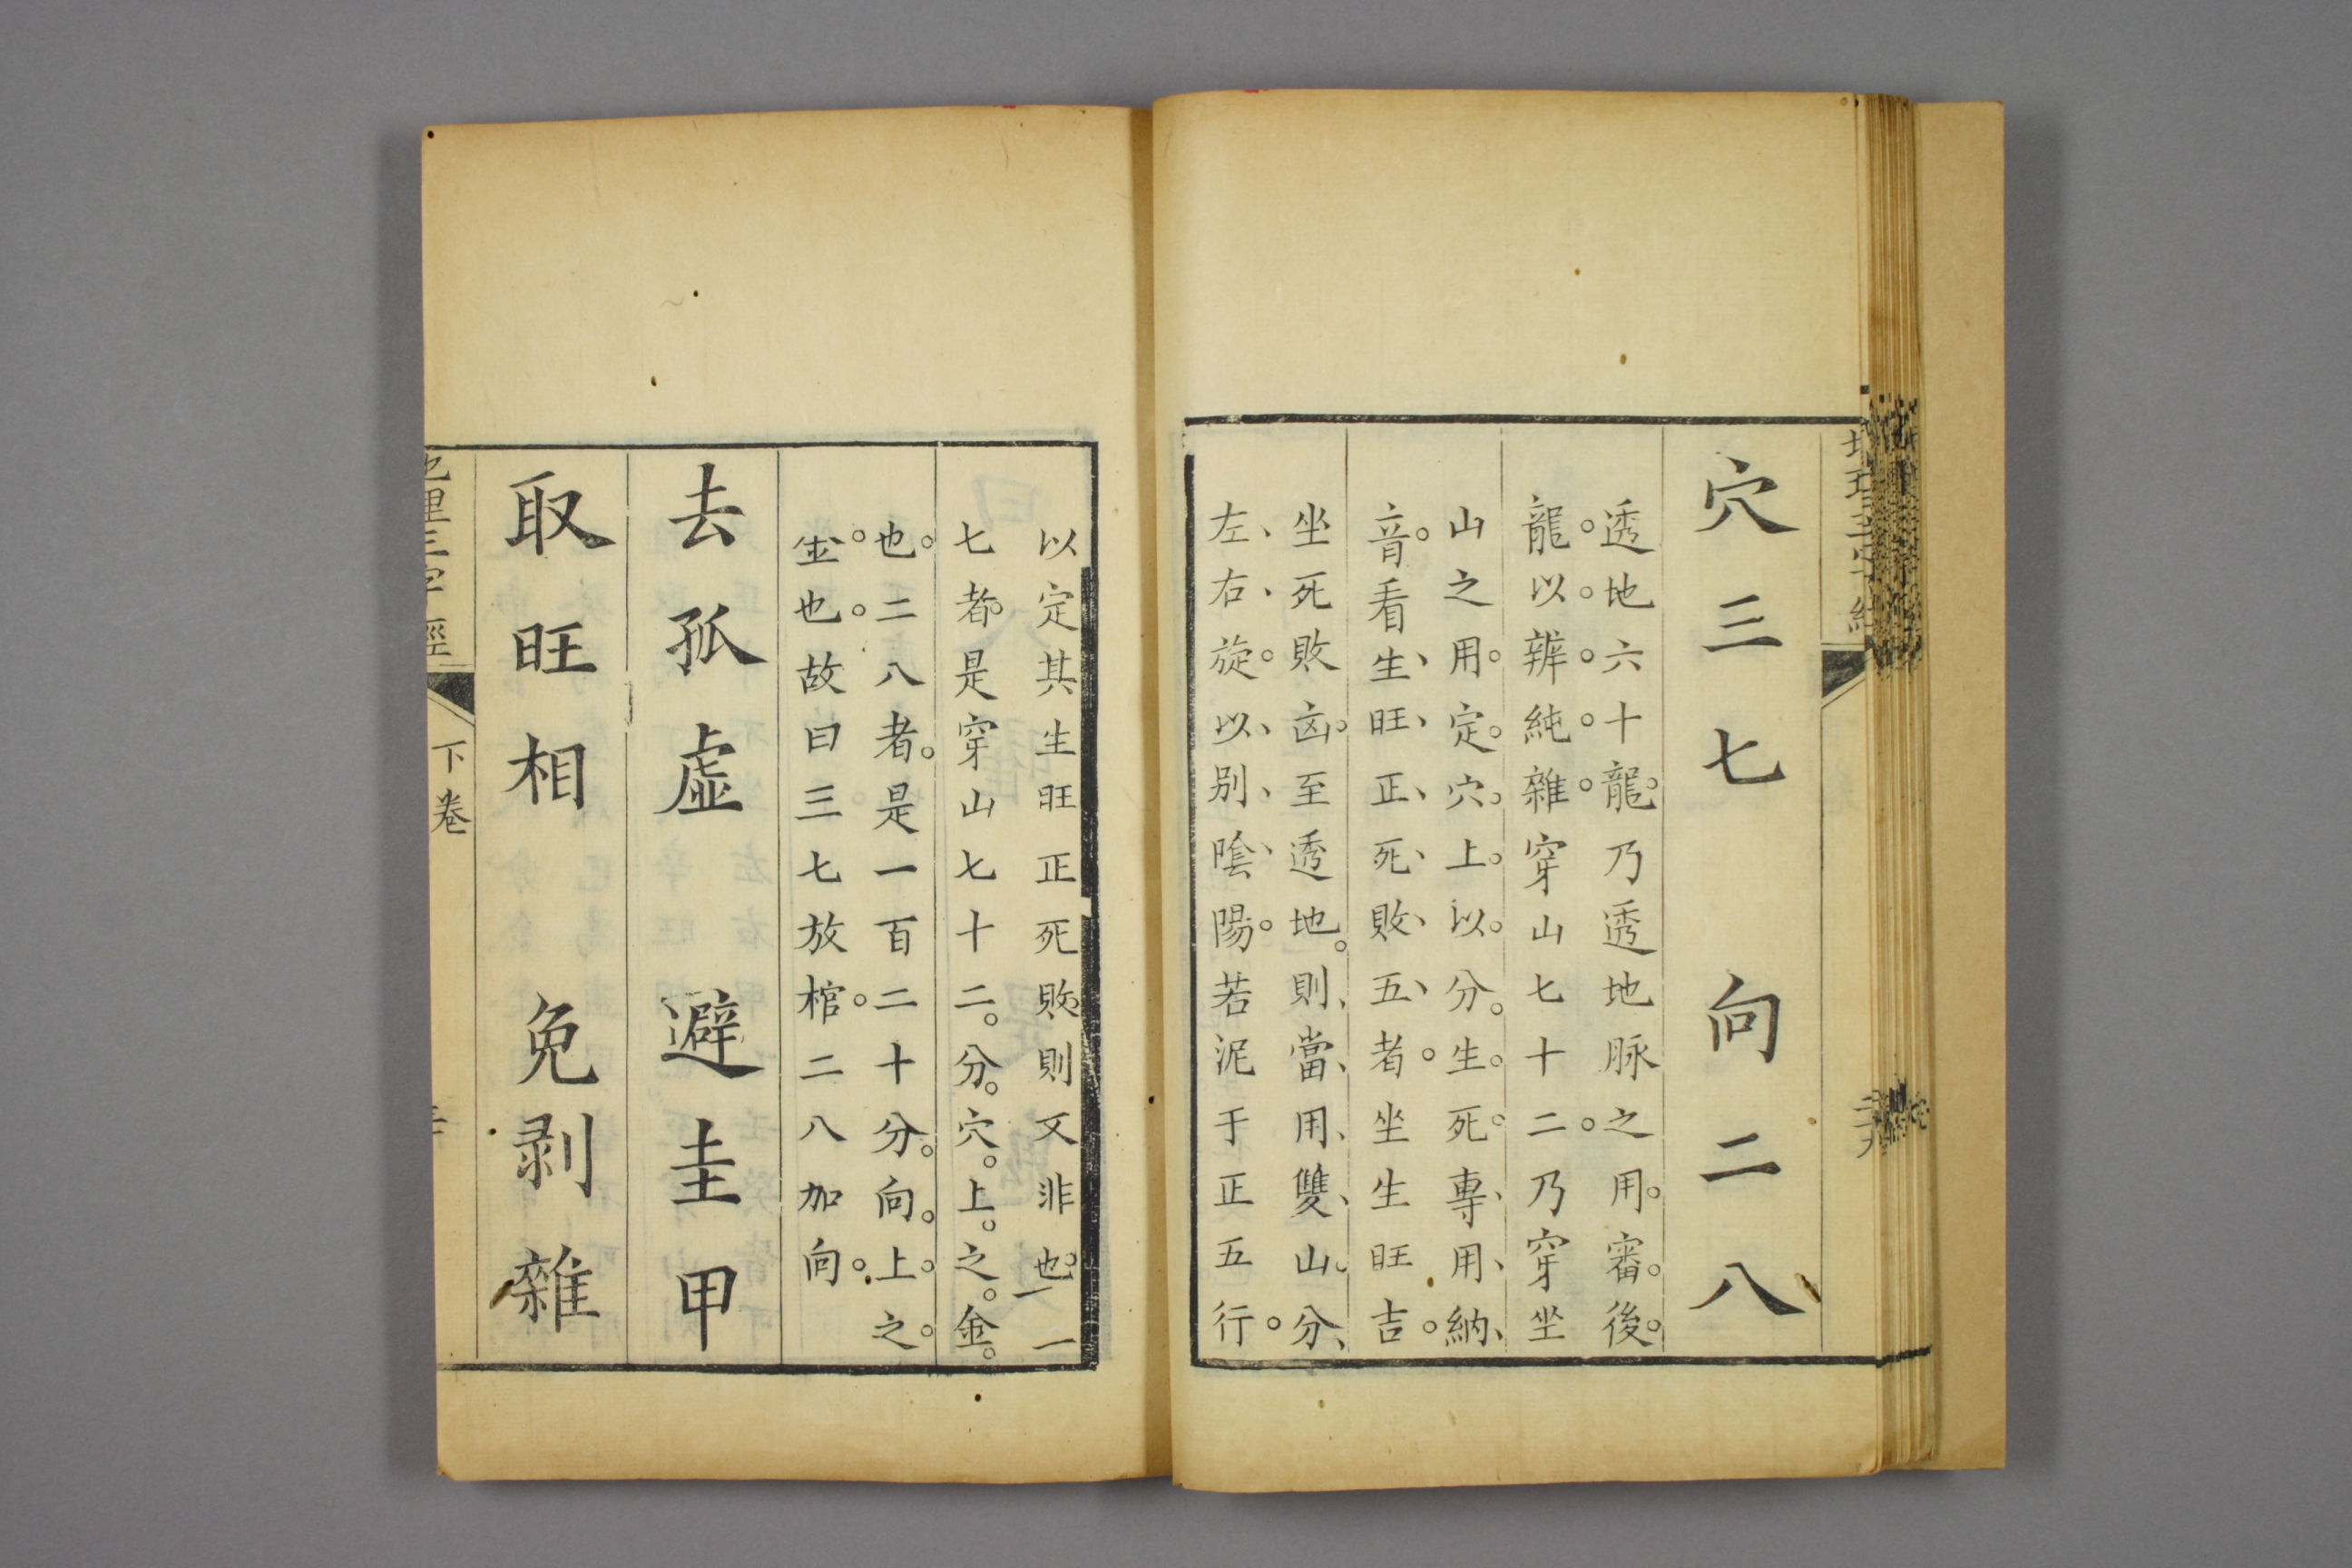 穴三七　向二八
透地六十龍。乃透地脉之用。審。後。
龍。以。辨。純。雜。穿山七十二。乃穿坐
山之用。定。穴。上。以。分。生。死。專、用、納、
音。看生、旺、正、死、敗、五、者。坐生旺吉。
坐死敗凶。至透地。則、當、用、雙、山、分、
左、右、旋。以、別、陰、陽。若泥于正五行。
以定其生旺正死敗。則又非也。一
七者。是穿山七十二。分。穴。上。之。金。
也。二八者。是一百二十分。向。上。之。
金。也。故曰三七放棺。二八加向。
去孤虛　避圭甲
取旺相　免剥雜
地理三字經
下卷